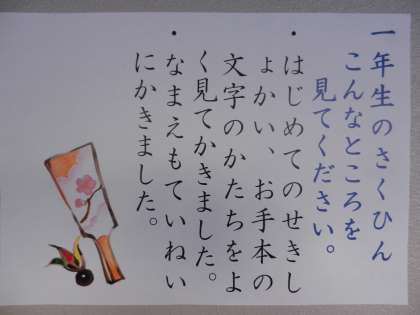 一年生のさくひん
こんなところを
見てください。
・はじめてのせきし
ょかい、お手本の
文字のかたちをよ
く見てかきました。
・なまえもていねい
にかきました。